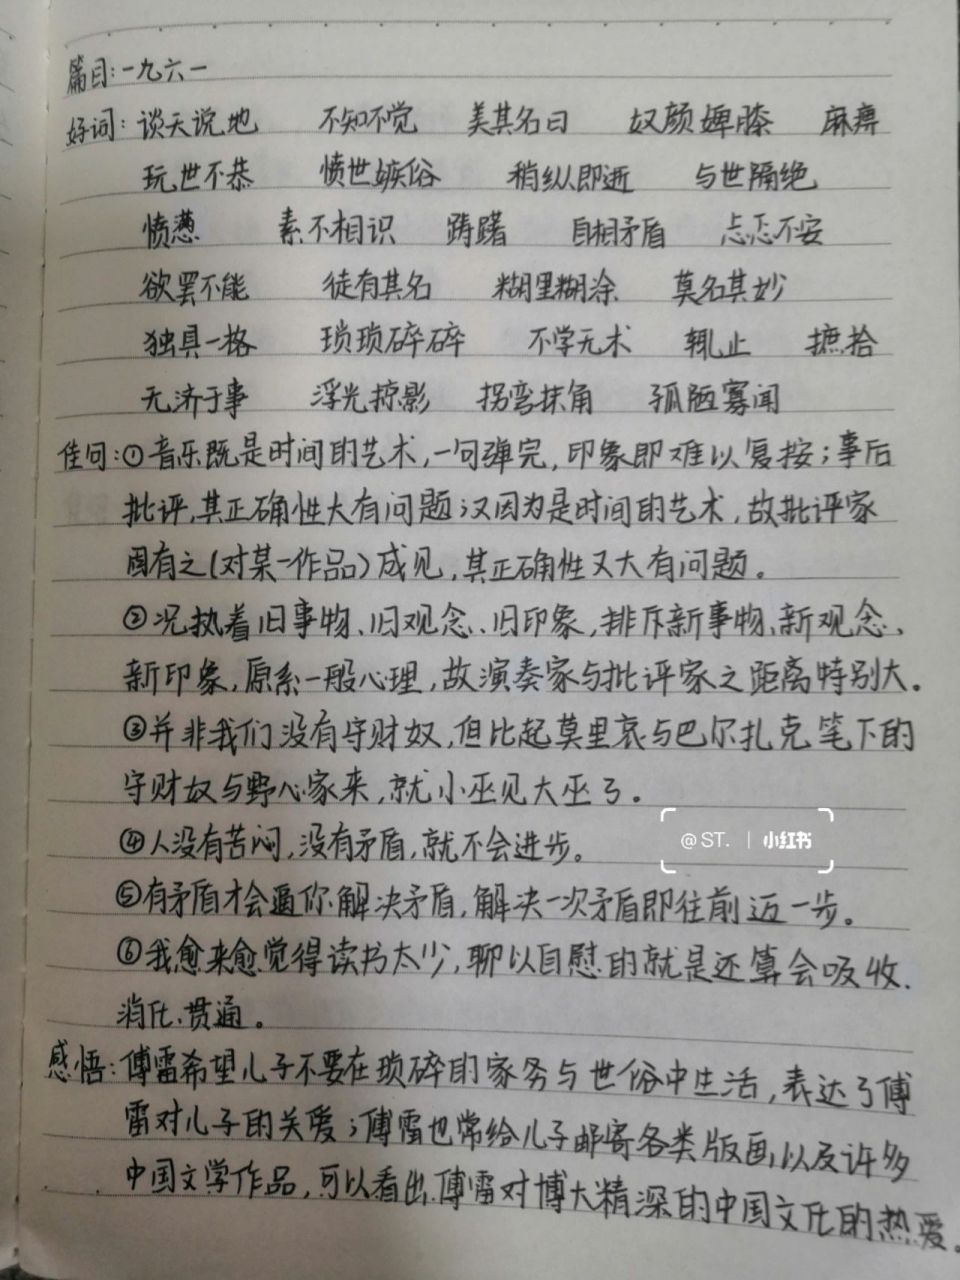 篇目:一九六一
好词:谈天说地 不知不觉 美其名曰 奴颜婢膝 麻痹
玩世不恭 愤世嫉俗 稍纵即逝 与世隔绝
愤懑 素不相识 踌躇 自相矛盾 忐忑不安
欲罢不能 徒有其名 糊里糊涂 莫名其妙
独具一格 琐琐碎碎 不学无术 辄止 摭拾
无济于事 浮光掠影 拐弯抹角 孤陋寡闻
佳句:①音乐既是时间的艺术,一句弹完,印象即难以复按;事后
批评,其正确性大有问题;汉因为是时间的艺术,故批评家
固有之(对某一作品)成见,其正确性又大有问题。
②况执着旧事物、旧观念、旧印象,排斥新事物、新观念、
新印象,原系一般心理,故演奏家与批评家之距离特别大。
③并非我们没有守财奴,但比起莫里哀与巴尔扎克笔下的
守财奴与野心家来,就小巫见大巫了。
④人没有苦闷,没有矛盾,就不会进步。
@ST. | 小红书
⑤有矛盾才会逼你解决矛盾,解决一次矛盾即往前迈一步。
⑥我愈来愈觉得读书太少,聊以自慰的就是还算会吸收、
消化、贯通。
感悟:傅雷希望儿子不要在琐碎的家务与世俗中生活,表达了傅
雷对儿子的关爱;傅雷也常给儿子邮寄各类版画,以及许多
中国文学作品,可以看出傅雷对博大精深的中国文化的热爱。